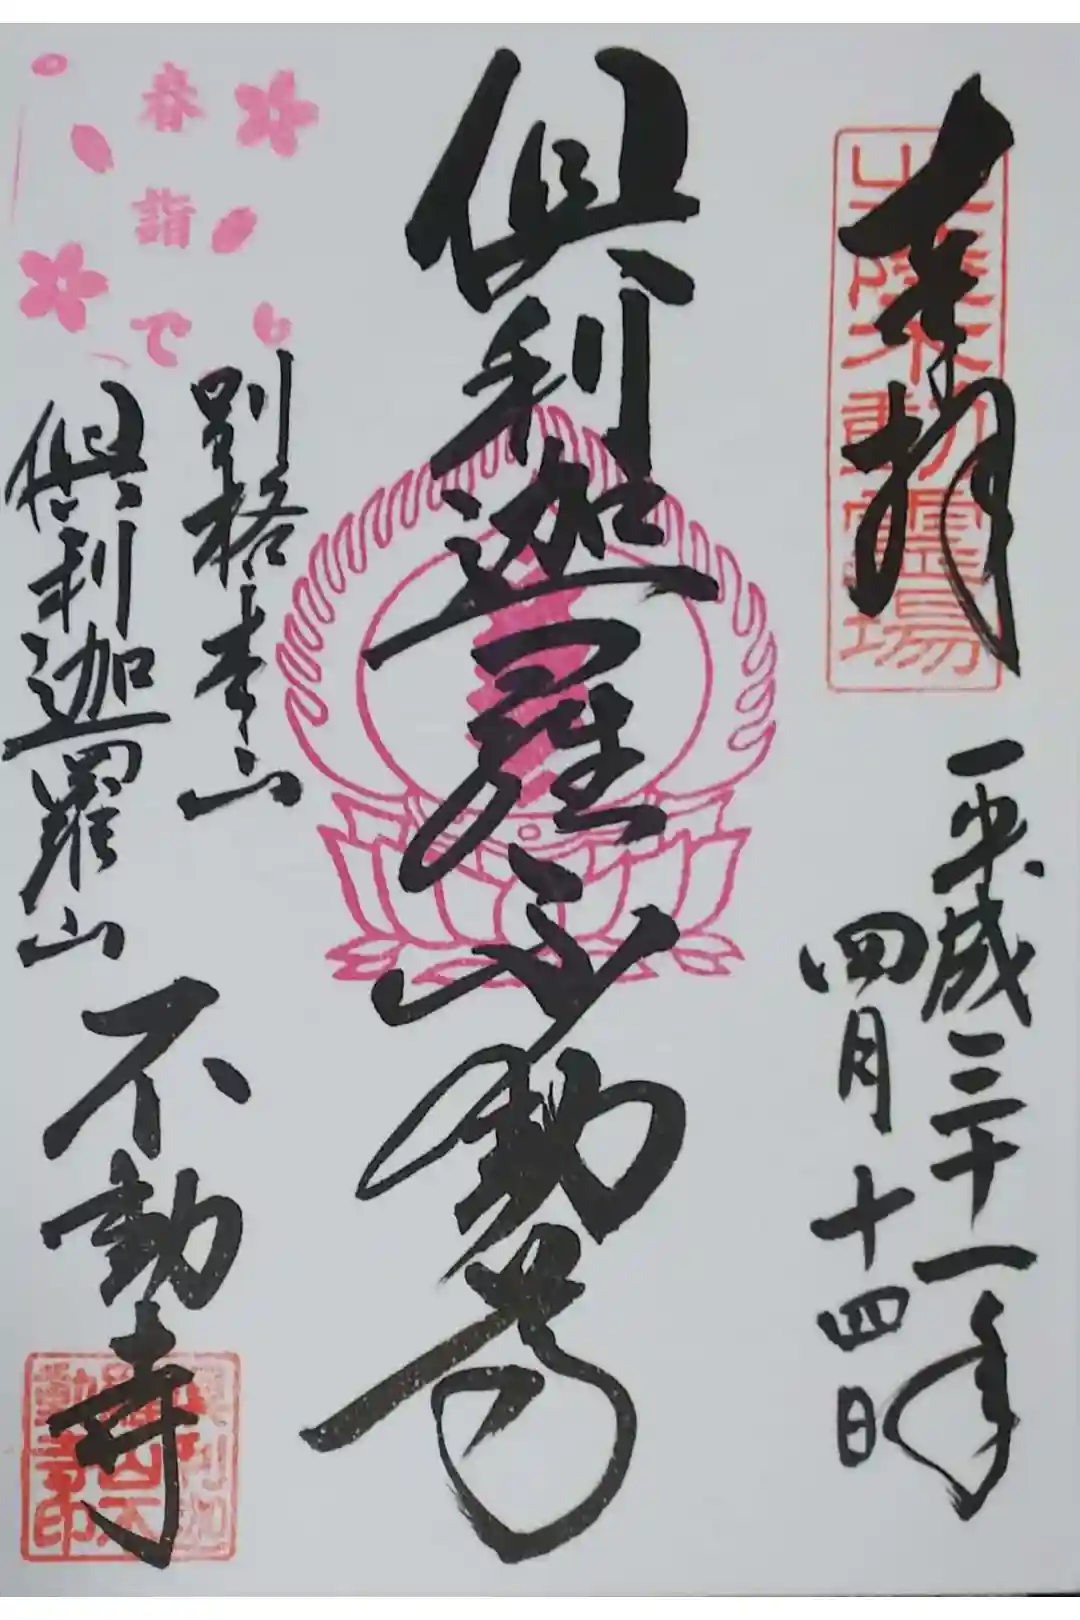 奉拝
北陸不動霊場
平成三十一年
四月十四日
倶利迦羅不動寺
春詣で
別格本山
倶利迦羅山
不動寺